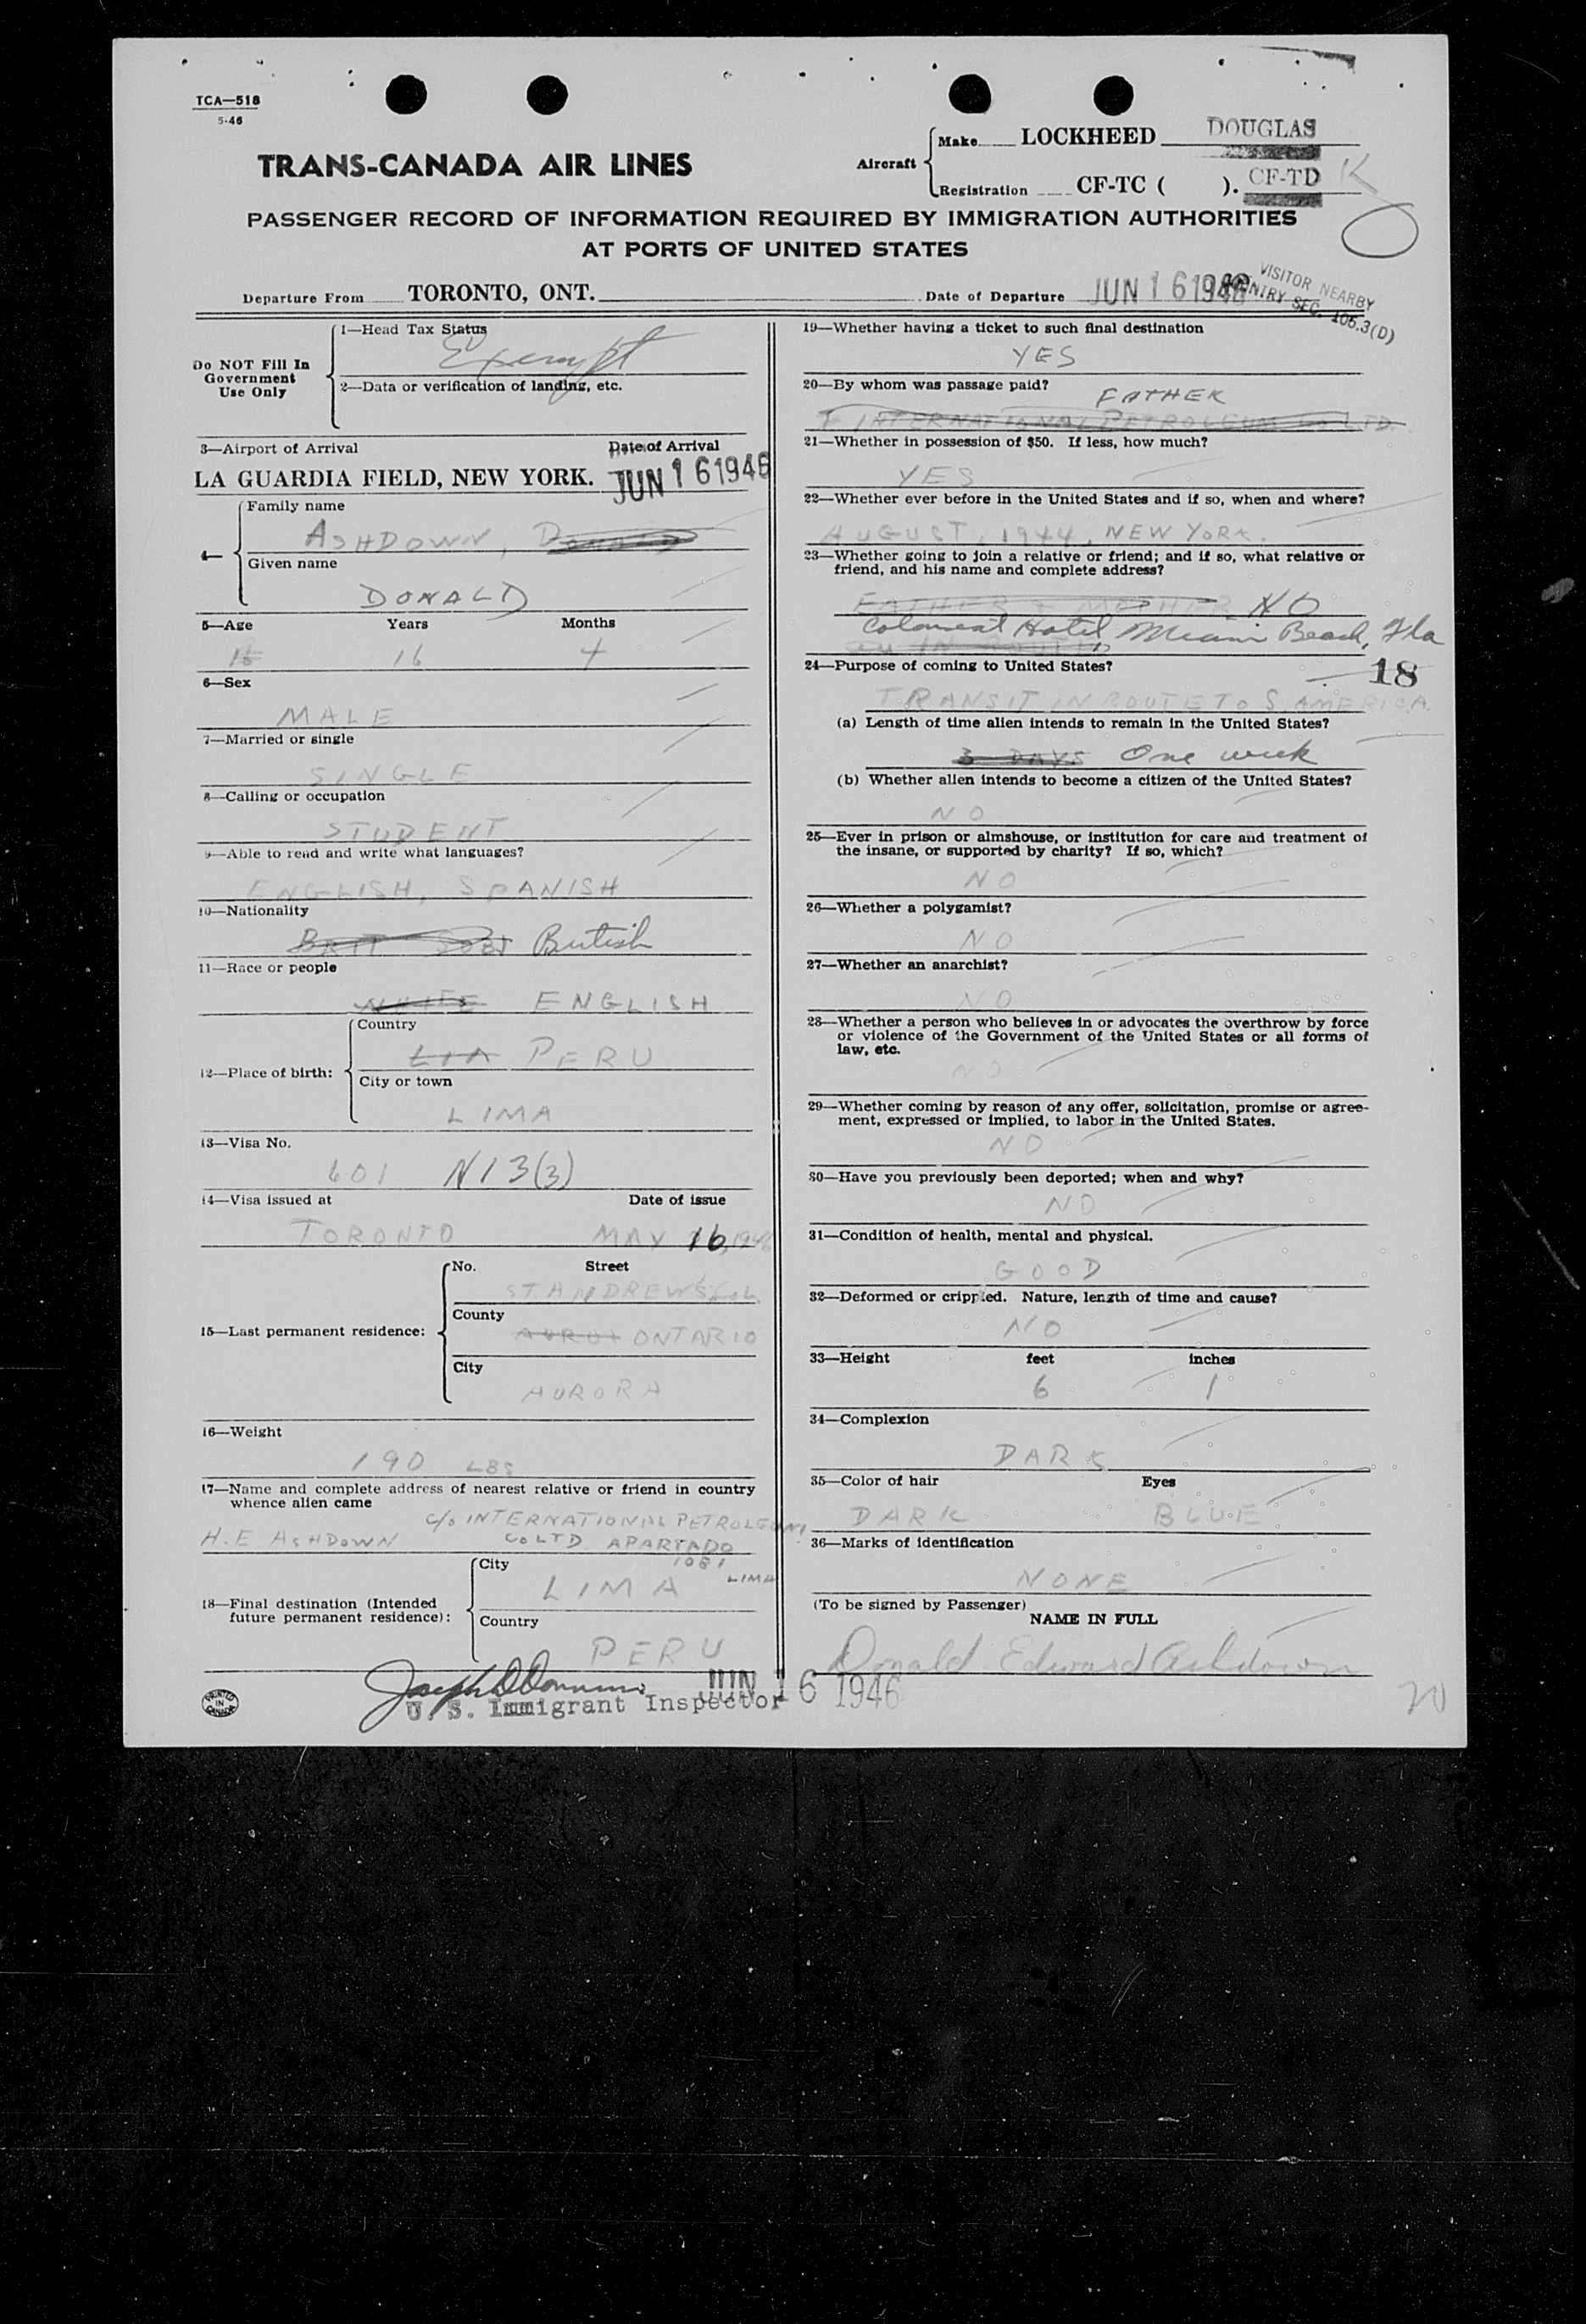 TCA—518
5-46
TRANS-CANADA AIR LINES
Aircraft
Make LOCKHEED DOUGLAS
Registration CF-TC ( ). CF-TD K
PASSENGER RECORD OF INFORMATION REQUIRED BY IMMIGRATION AUTHORITIES
AT PORTS OF UNITED STATES
VISITOR NEARBY
COUNTRY SEC. 105.3(D)
Departure From TORONTO, ONT. Date of Departure JUN 16 1946
Do NOT Fill In
Government
Use Only
1—Head Tax Status
Exempt
2—Data or verification of landing, etc.
3—Airport of Arrival Date of Arrival
LA GUARDIA FIELD, NEW YORK. JUN 16 1946
4—
Family name
ASHDOWN, DONALD
Given name
DONALD
5—Age Years Months
16 16 4
6—Sex
MALE
7—Married or single
SINGLE
8—Calling or occupation
STUDENT
9—Able to read and write what languages?
ENGLISH, SPANISH
10—Nationality
BRIT SUBJ British
11—Race or people
WHITE ENGLISH
12—Place of birth:
Country
LIA PERU
City or town
LIMA
13—Visa No.
601 N13(3)
14—Visa issued at Date of issue
TORONTO MAY 16, 1946
15—Last permanent residence:
No. Street
ST. ANDREWS
County
ONTARIO
City
AURORA
16—Weight
190 LBS
17—Name and complete address of nearest relative or friend in country
whence alien came
C/O INTERNATIONAL PETROLEUM
H.E ASHDOWN CO LTD APARTADO
1081
LIMA
18—Final destination (Intended
future permanent residence):
City
LIMA
Country
PERU
U. S. Immigrant Inspector JUN 16 1946
PRINTED
IN
CANADA
19—Whether having a ticket to such final destination
YES
20—By whom was passage paid?
FATHER
INTERNATIONAL PETROLEUM Co LTD.
21—Whether in possession of $50. If less, how much?
YES
22—Whether ever before in the United States and if so, when and where?
AUGUST, 1944, NEW YORK.
23—Whether going to join a relative or friend; and if so, what relative or
friend, and his name and complete address?
FATHER & MOTHER NO
Colonial Hotel, Miami Beach, Fla
24—Purpose of coming to United States?
18
TRANSIT IN ROUTE TO S. AMERICA.
(a) Length of time alien intends to remain in the United States?
3 DAYS One week
(b) Whether alien intends to become a citizen of the United States?
NO
25—Ever in prison or almshouse, or institution for care and treatment of
the insane, or supported by charity? If so, which?
NO
26—Whether a polygamist?
NO
27—Whether an anarchist?
NO
28—Whether a person who believes in or advocates the overthrow by force
or violence of the Government of the United States or all forms of
law, etc.
NO
29—Whether coming by reason of any offer, solicitation, promise or agree-
ment, expressed or implied, to labor in the United States.
NO
30—Have you previously been deported; when and why?
NO
31—Condition of health, mental and physical.
GOOD
32—Deformed or crippled. Nature, length of time and cause?
NO
33—Height feet inches
6 1
34—Complexion
DARK
35—Color of hair Eyes
DARK BLUE
36—Marks of identification
NONE
(To be signed by Passenger)
NAME IN FULL
Donald Edward Ashdown
20